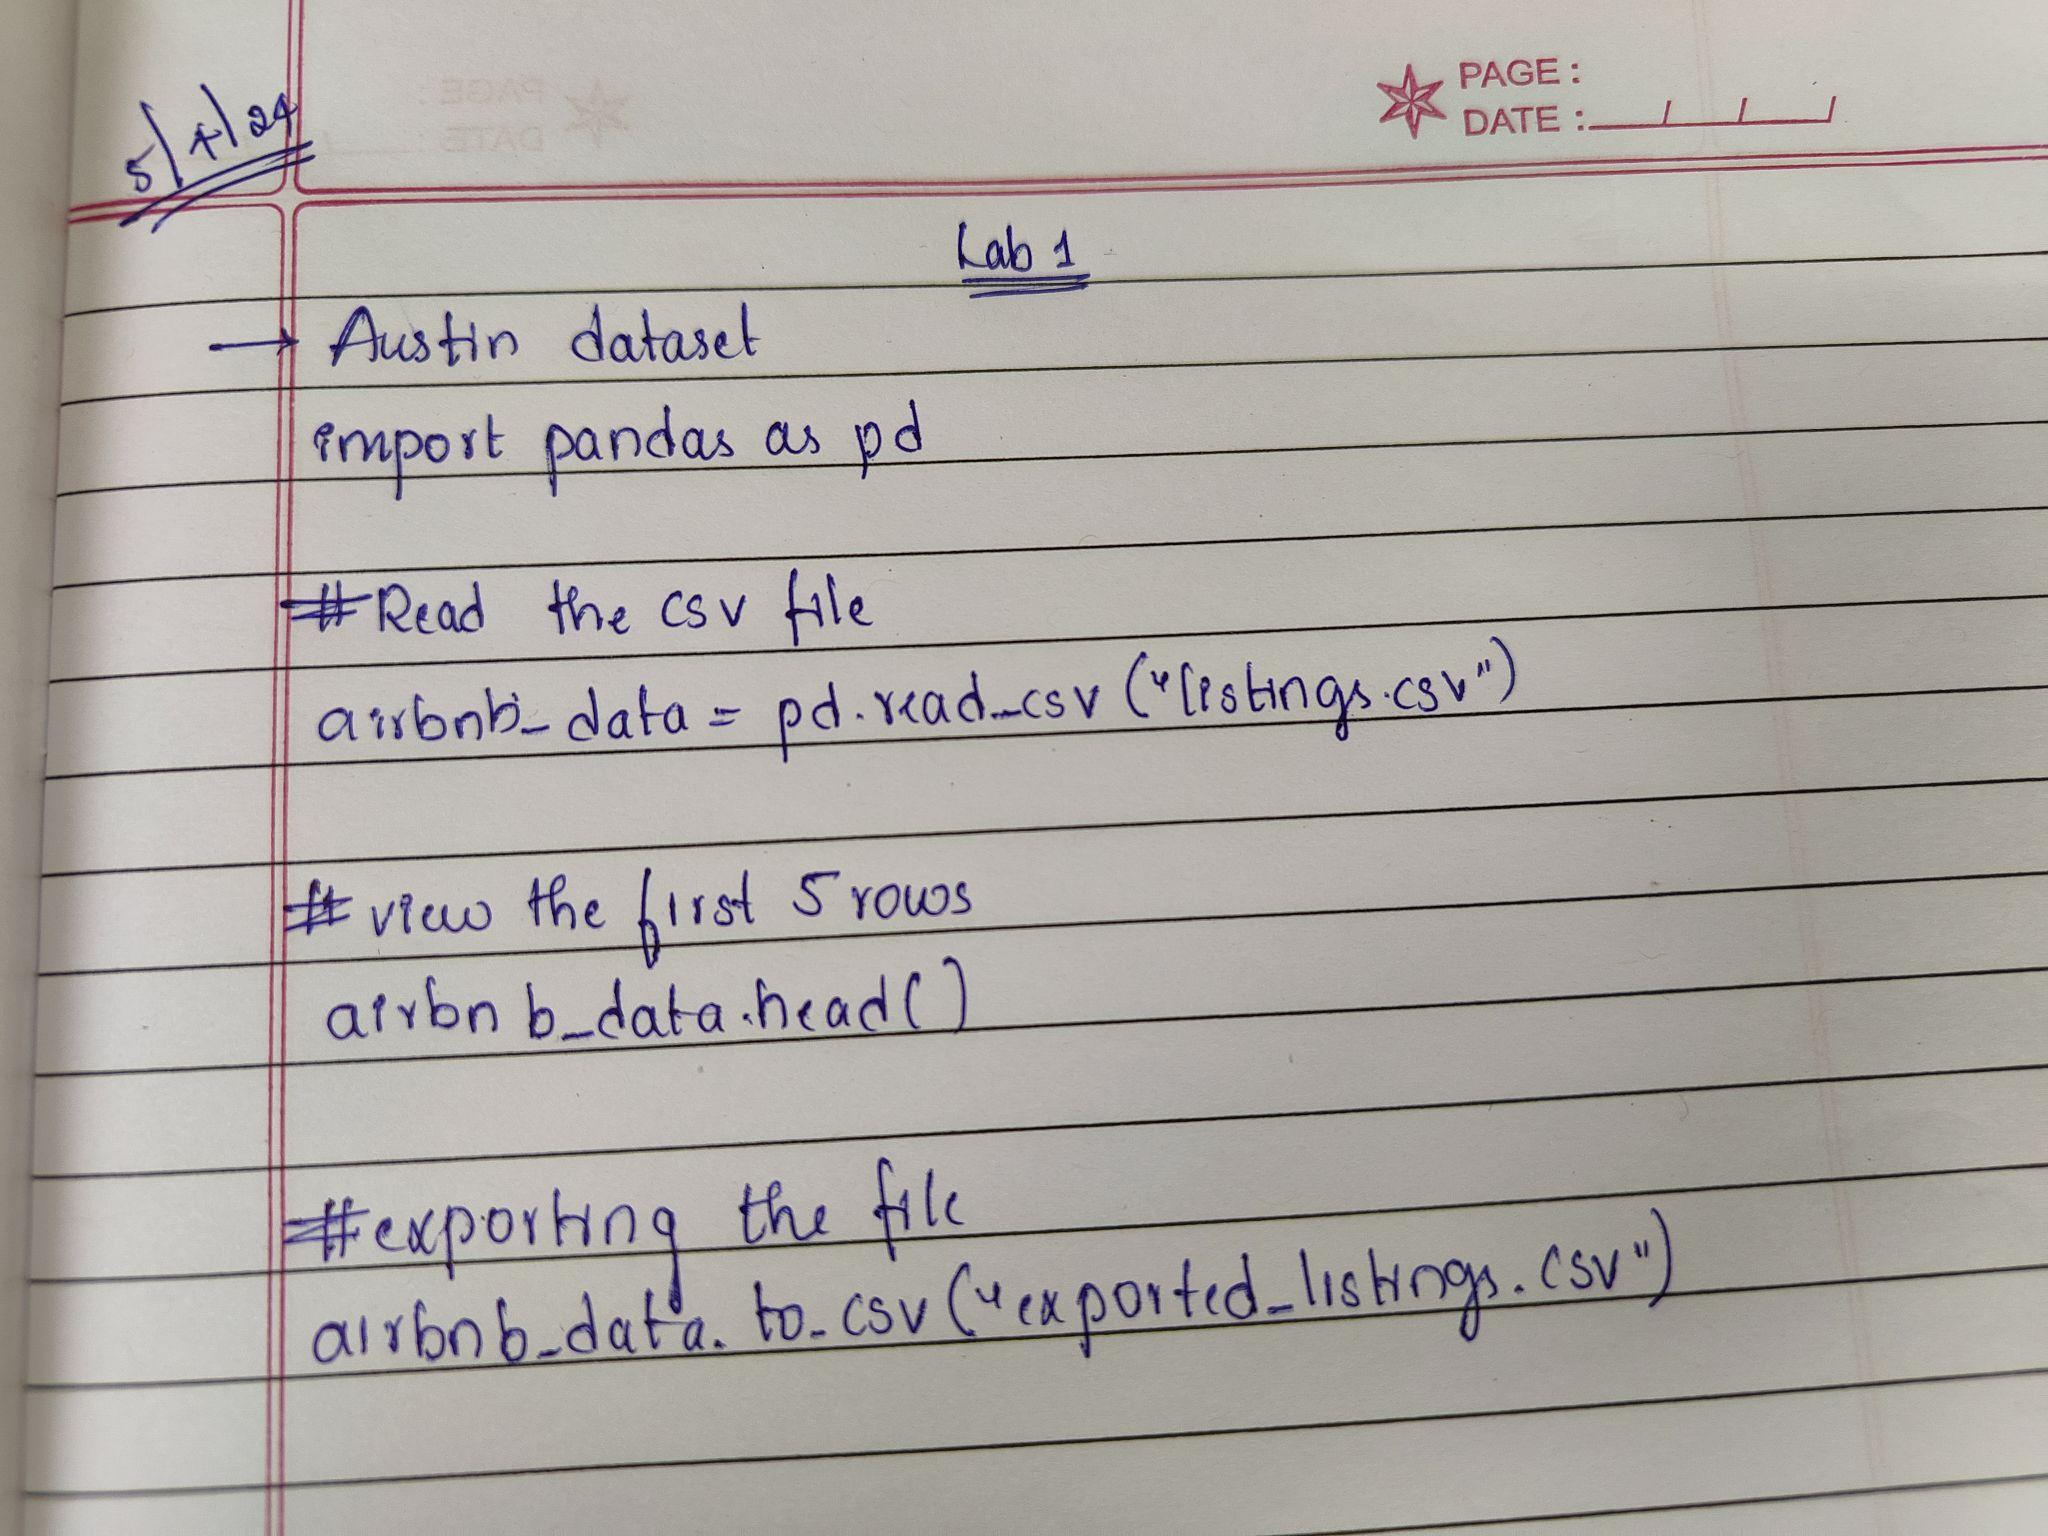 PAGE :
DATE :
5/4/24
Lab 1
→ Austin dataset
import pandas as pd
#Read the csv file
airbnb_data = pd.read_csv ("listings.csv")
# view the first 5 rows
airbnb_data.head()
#exporting the file
airbnb_data. to_csv ("exported_listings.csv")